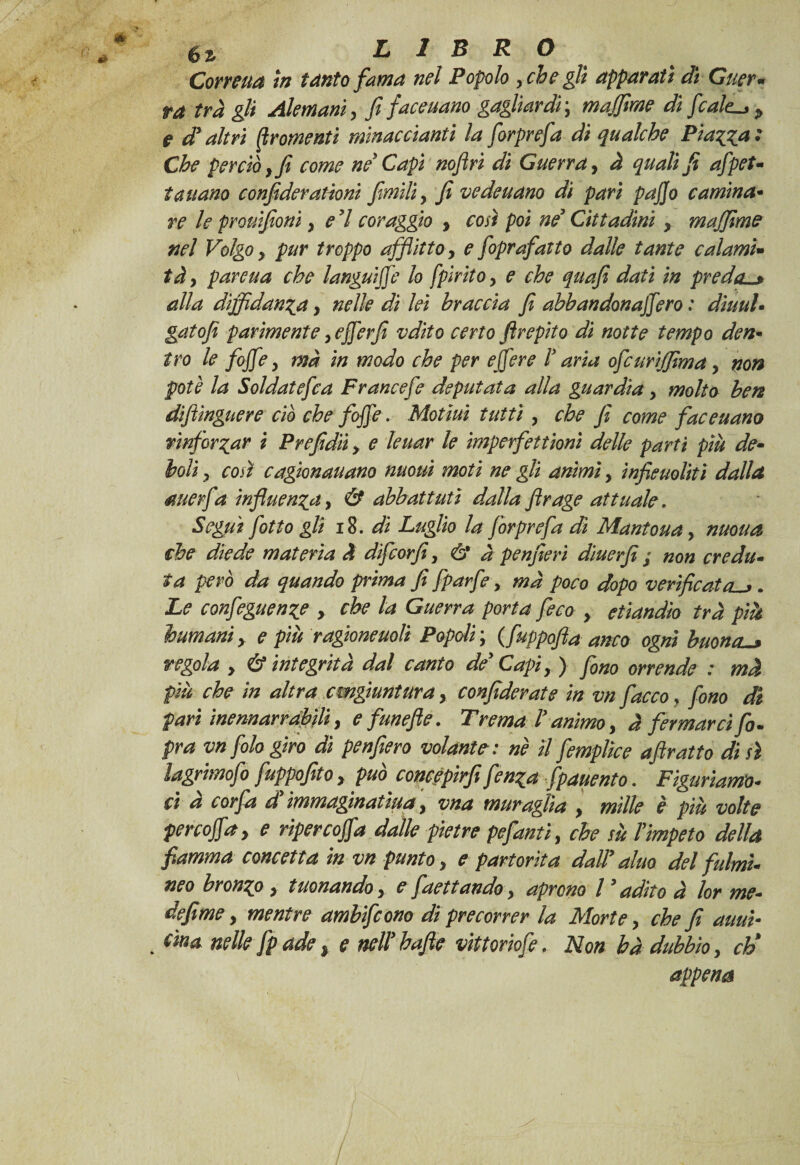 62 LIBRO
Correua in tanto fama nel Popolo , che gli apparati di Guer-
ra trà gli Alemani, ſi faceuano gagliardi; maſſime di ſcale ,
e d' altri ſtromenti minaccianti la ſorpreſa di qualche Piazza:
Che perciò, ſi come ne' Capi noſtri di Guerra, à quali ſi aſpet-
tauano conſiderationi ſimili, ſi vedeuano di pari paſſo camina-
re le prouiſioni , e 'l coraggio , così poi ne' Cittadini , maſſime
nel Volgo, pur troppo afflitto, e ſoprafatto dalle tante calami-
tà, pareua che languiſſe lo ſpirito, e che quaſi dati in preda
alla diffidanza, nelle di lei braccia ſi abbandonaſſero: diuul-
gatoſi parimente, eſſerſi vdito certo ſtrepito di notte tempo den-
tro le foſſe, mà in modo che per eſſere l' aria oſcuriſſima, non
potè la Soldateſca Franceſe deputata alla guardia, molto ben
diſtinguere ciò che foſſe. Motiui tutti , che ſi come faceuano
rinforzar i Preſidii, e leuar le imperfettioni delle parti più de-
boli, così cagionauano nuoui moti ne gli animi, infieuoliti dalla
auerſa influenza, & abbattuti dalla ſtrage attuale.
Seguì ſotto gli 18. di Luglio la ſorpreſa di Mantoua, nuoua
che diede materia à diſcorſi, & à penſieri diuerſi; non credu-
ta però da quando prima ſi ſparſe, mà poco dopo verificata .
Le conſeguenze , che la Guerra porta ſeco , etiandio trà più
humani, e più ragioneuoli Popoli; (ſuppoſta anco ogni buona
regola , & integrità dal canto de' Capi, ) ſono orrende : mà
più che in altra congiuntura, conſiderate in vn ſacco, ſono di
pari inennarrabili, e funeſte. Trema l' animo, à fermarci ſo-
pra vn ſolo giro di penſiero volante: nè il ſemplice aſtratto di sì
lagrimoſo ſuppoſito, può concepirſi ſenza ſpauento. Figuriamo-
ci à corſa d' immaginatiua, vna muraglia , mille è più volte
percoſſa, e ripercoſſa dalle pietre peſanti, che sù l'impeto della
fiamma concetta in vn punto, e partorita dall' aluo del fulmi-
neo bronzo, tuonando, e ſaettando, aprono l ' adito à lor me-
deſime, mentre ambiſcono di precorrer la Morte, che ſi auui-
cina nelle ſpade, e nell' haſte vittorioſe. Non hà dubbio, ch'
appena